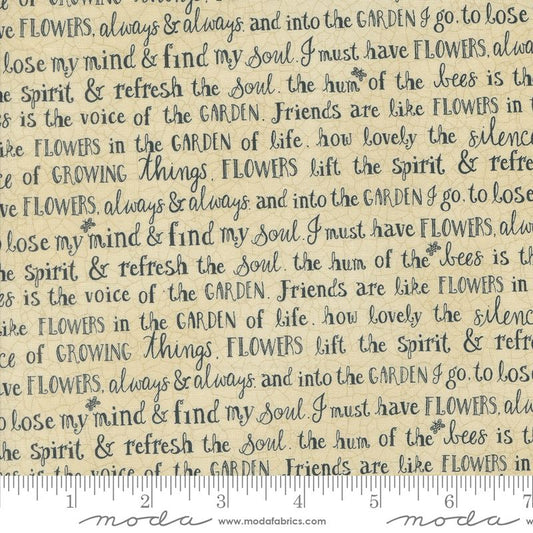 of GROWING things.
ve FLOWERS, always & always. and into the GARDEN I go, to lose
lose my mind & find my soul. I must have FLOWERS, alwa
he spirit & refresh the soul. the hum of the bees is th
s is the voice of the GARDEN. Friends are like FLOWERS in t
ike FLOWERS in the GARDEN of life. how lovely the silenc
ce of GROWING things. FLOWERS lift the spirit & refre
ve FLOWERS, always & always. and into the GARDEN I go, to lose
o lose my mind & find my soul. I must have FLOWERS, alw
he spirit & refresh the soul. the hum of the bees is th
es is the voice of the GARDEN. Friends are like FLOWERS in
like FLOWERS in the GARDEN of life. how lovely the silenc
ce of GROWING things. FLOWERS lift the spirit & refr
ve FLOWERS, always & always. and into the GARDEN I go, to lose
o lose my mind & find my soul. I must have FLOWERS, alw
he spirit & refresh the soul. the hum of the bees is t
es is the voice of the GARDEN. Friends are like FLOWERS in
1 2 3 4 5 6 7
moda www.modafabrics.com moda